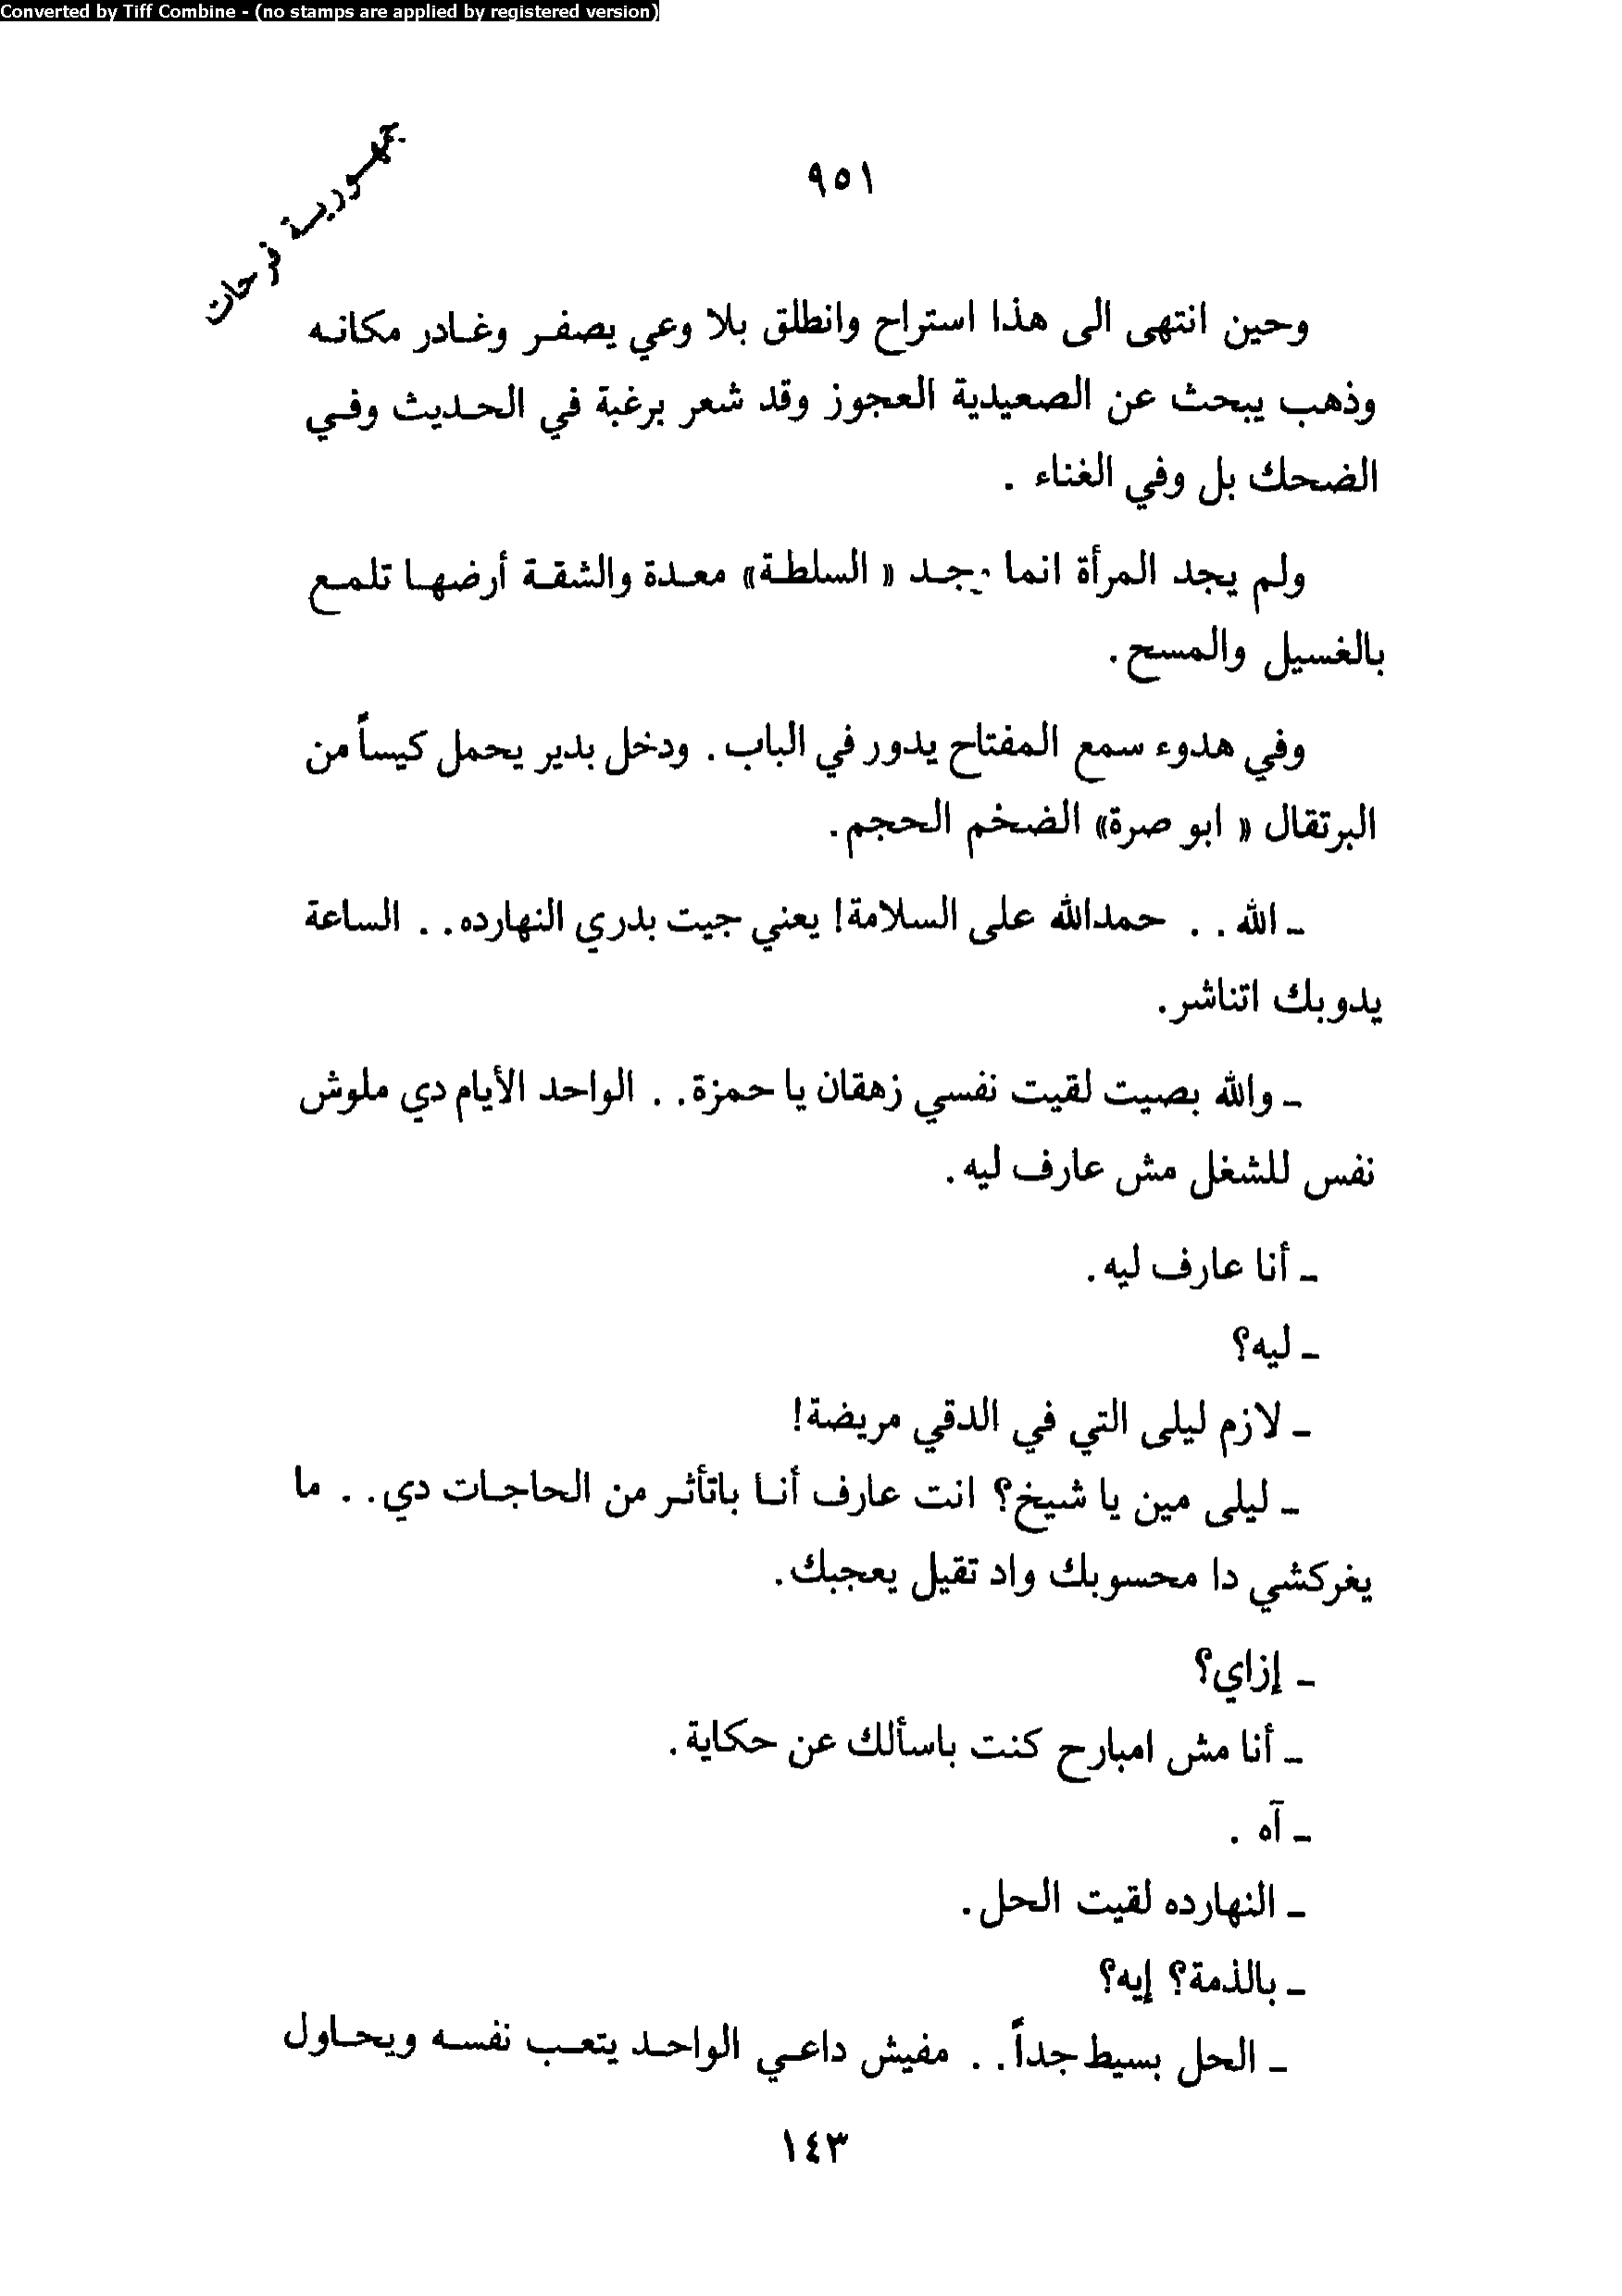 Converted by Tiff Combine - (no stamps are applied by registered version)
جمهورية فرحات
٩٥١
وحين انتهى الى هذا استراح وانطلق بلا وعي يصفر وغادر مكانه
وذهب يبحث عن الصعيدية العجوز وقد شعر برغبة في الحديث وفي
الضحك بل وفي الغناء .
ولم يجد المرأة انما وجد « السلطة» معدة والشقة أرضها تلمع
بالغسيل والمسح.
وفي هدوء سمع المفتاح يدور في الباب. ودخل بدير يحمل كيساً من
البرتقال « ابو صرة» الضخم الحجم.
ـ الله . . حمدالله على السلامة! يعني جيت بدري النهارده. . الساعة
يدوبك اتناشر.
ـ والله بصيت لقيت نفسي زهقان يا حمزة. . الواحد الأيام دي ملوش
نفس للشغل مش عارف ليه.
ـ أنا عارف ليه.
ـ ليه؟
ـ لازم ليلى التي في الدقي مريضة!
ـ ليلى مين يا شيخ؟ انت عارف أنا باتأثر من الحاجات دي. . ما
يغركشي دا محسوبك واد تقيل يعجبك.
ـ إزاي؟
ـ أنا مش امبارح كنت باسألك عن حكاية.
ـ آه .
ـ النهارده لقيت الحل.
ـ بالذمة؟ إيه؟
ـ الحل بسيط جداً. . مفيش داعي الواحد يتعب نفسه ويحاول
١٤٣